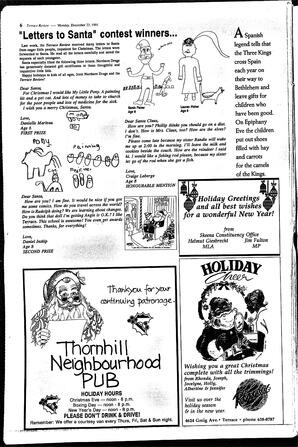 6 Terrace Review — Monday, December 23, 1991
"Letters to Santa" contest winners...
Last week, the Terrace Review received many letters to Santa
from eager little people, impatient for Christmas. The letters were
forwarded to Santa. He read them all carefully and noted the special
wants of each youngster.
Santa especially liked the following three letters. Northern Drugs
has generously donated gift certificates to these thoughtful and
inquisitive little kids.
Happy holidays to kids of all ages, from Northern Drugs and the
Terrace Review.
Dear Santa,
For Christmas I would like My Little Pony. A painting
kit and a pet cat. And lots of money to take to church
for the poor people and lots of medicine for the sick.
I wish you a merry Christmas, Santa.
Love,
Danielle
Age 6
FIRST PRIZE
Pony
Painting
Dear Santa,
How are you? I am fine. It would be nice if you got
me some comics. How do you travel across the world?
How is Rudolph doing? We are learning about changes.
Do you think that doll I'm getting Angie is O.K.? I like
Terrace. This school is awesome! You even get awards
sometimes. Thanks, for everything!
Love,
Daniel
Age 8
SECOND PRIZE
Dear Santa Claus,
How are you? Philip thinks you should go on a diet.
I don't. How is Mrs. Claus, too? How are the elves?
I'm fine.
Please come because my sister Randie will wake
me up at 2:00 in the morning. I'll leave the milk and
cookies beside the couch. How are the reindeer I would
like a fishing rod please, because my sister
got the red when she got a fish.
Love,
Craig Laberge
Age 8
HONOURABLE MENTION
A Spanish
legend tells
that the Three Kings
cross Spain
each year on
their way to
Bethlehem and
leave gifts for
children who
have been good.
On Epiphany
Eve the children
put out shoes
filled with hay
and carrots
for the camels
of the Kings.
Holiday Greetings
and all best wishes
for a wonderful New Year!
from
Skeena Constituency Office
Helmut Giesbrecht Jim Fulton
MLA MP
Thank you for your
continuing patronage.
Thornhill
Neighbourhood
PUB
HOLIDAY HOURS
Christmas Eve — noon - 8 p.m.
Boxing Day — noon - 8 p.m.
New Year's Day — noon - 8 p.m.
PLEASE DON'T DRINK & DRIVE!
Remember: We offer a courtesy van every Thurs, Fri, Sat & Sun night.
HOLIDAY
Cheer
Wishing you a great Christmas
complete with all the trimmings!
from Rhonda, Joseph,
Jocelyne, Holly,
Albertine & Jennifer
Visit us over the
holiday season
& in the new year.
4624 Greig Ave. • Terrace • phone